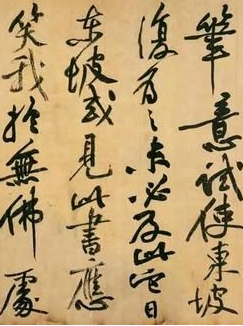 筆意試使東坡
復為之未必及此它日
東坡或見此書應
笑我於無佛處